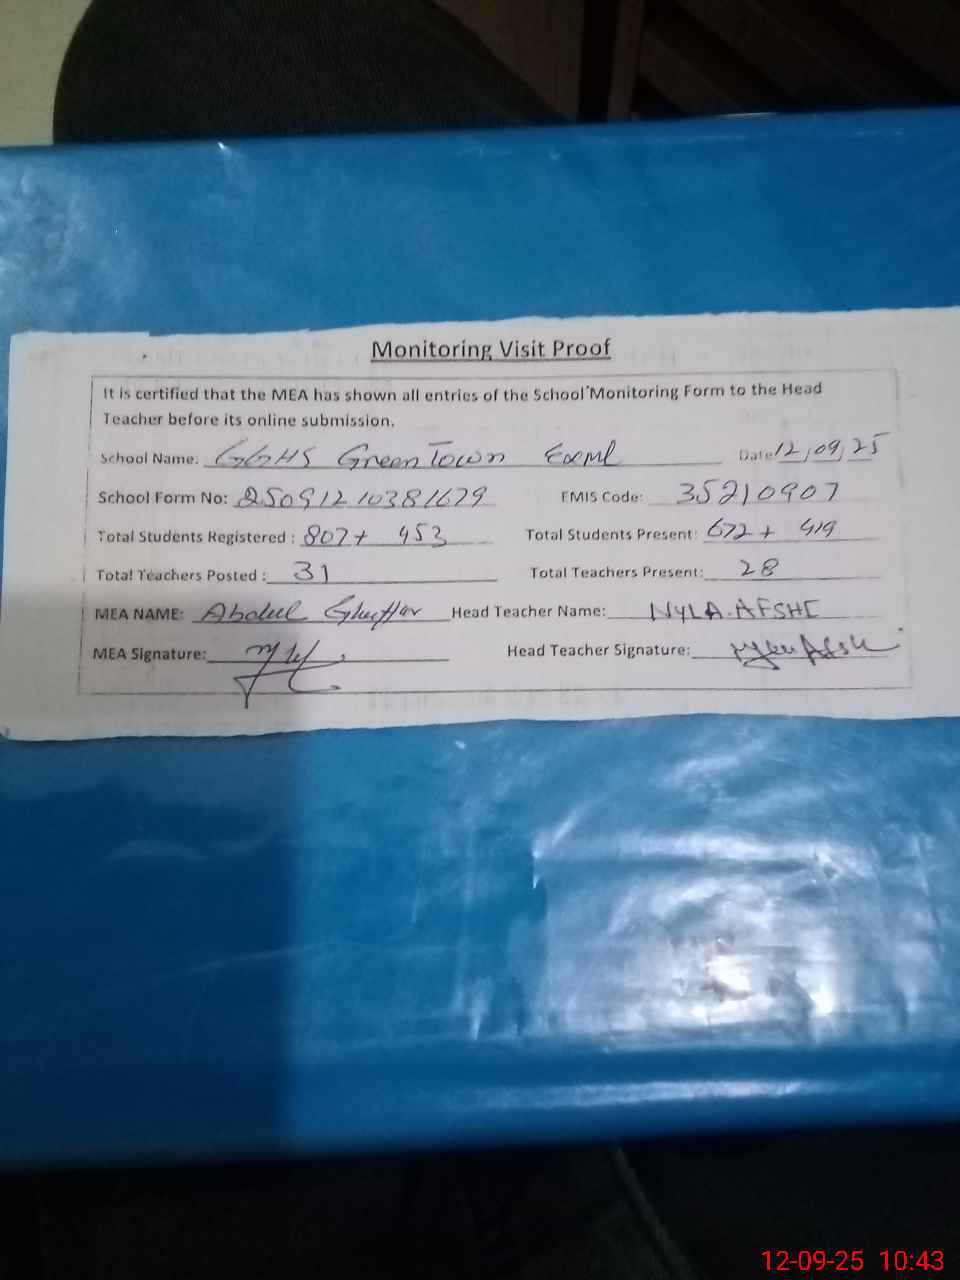 Monitoring Visit Proof
It is certified that the MEA has shown all entries of the School Monitoring Form to the Head
Teacher before its online submission.
School Name: GGHS Green Town Exml Date 12,09,25
School Form No: 25091210381679 EMIS Code: 35210907
Total Students Registered : 807+ 453 Total Students Present: 672 + 419
Total Teachers Posted : 31 Total Teachers Present: 28
MEA NAME: Abdul Ghaffar Head Teacher Name: NYLA.AFSHE
MEA Signature: Head Teacher Signature:
12-09-25 10:43